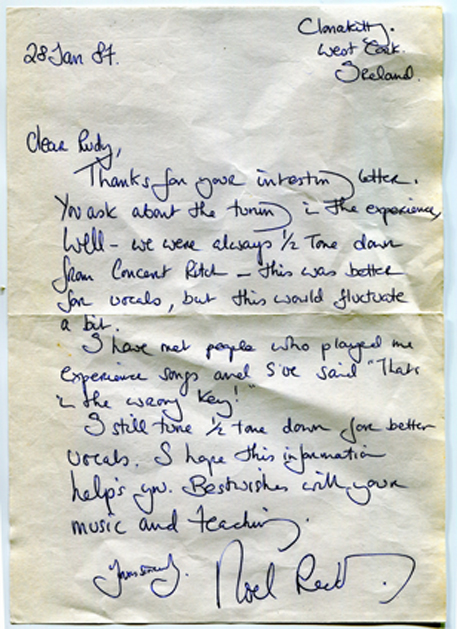 Clonakilty.
28 Jan 87.
West Cork.
Ireland.
Dear Rudy,
Thanks for your interesting letter.
You ask about the tuning in the experience,
Well - we were always 1/2 Tone down
from Concert Pitch - this was better
for vocals, but this would fluctuate
a bit.
I have met people who played me
experience songs and I've said "Thats
in the wrong key!"
I still tune 1/2 tone down for better
vocals. I hope this information
help's you. Best wishes with your
music and teaching.
Yours sincerely.
Noel Redding